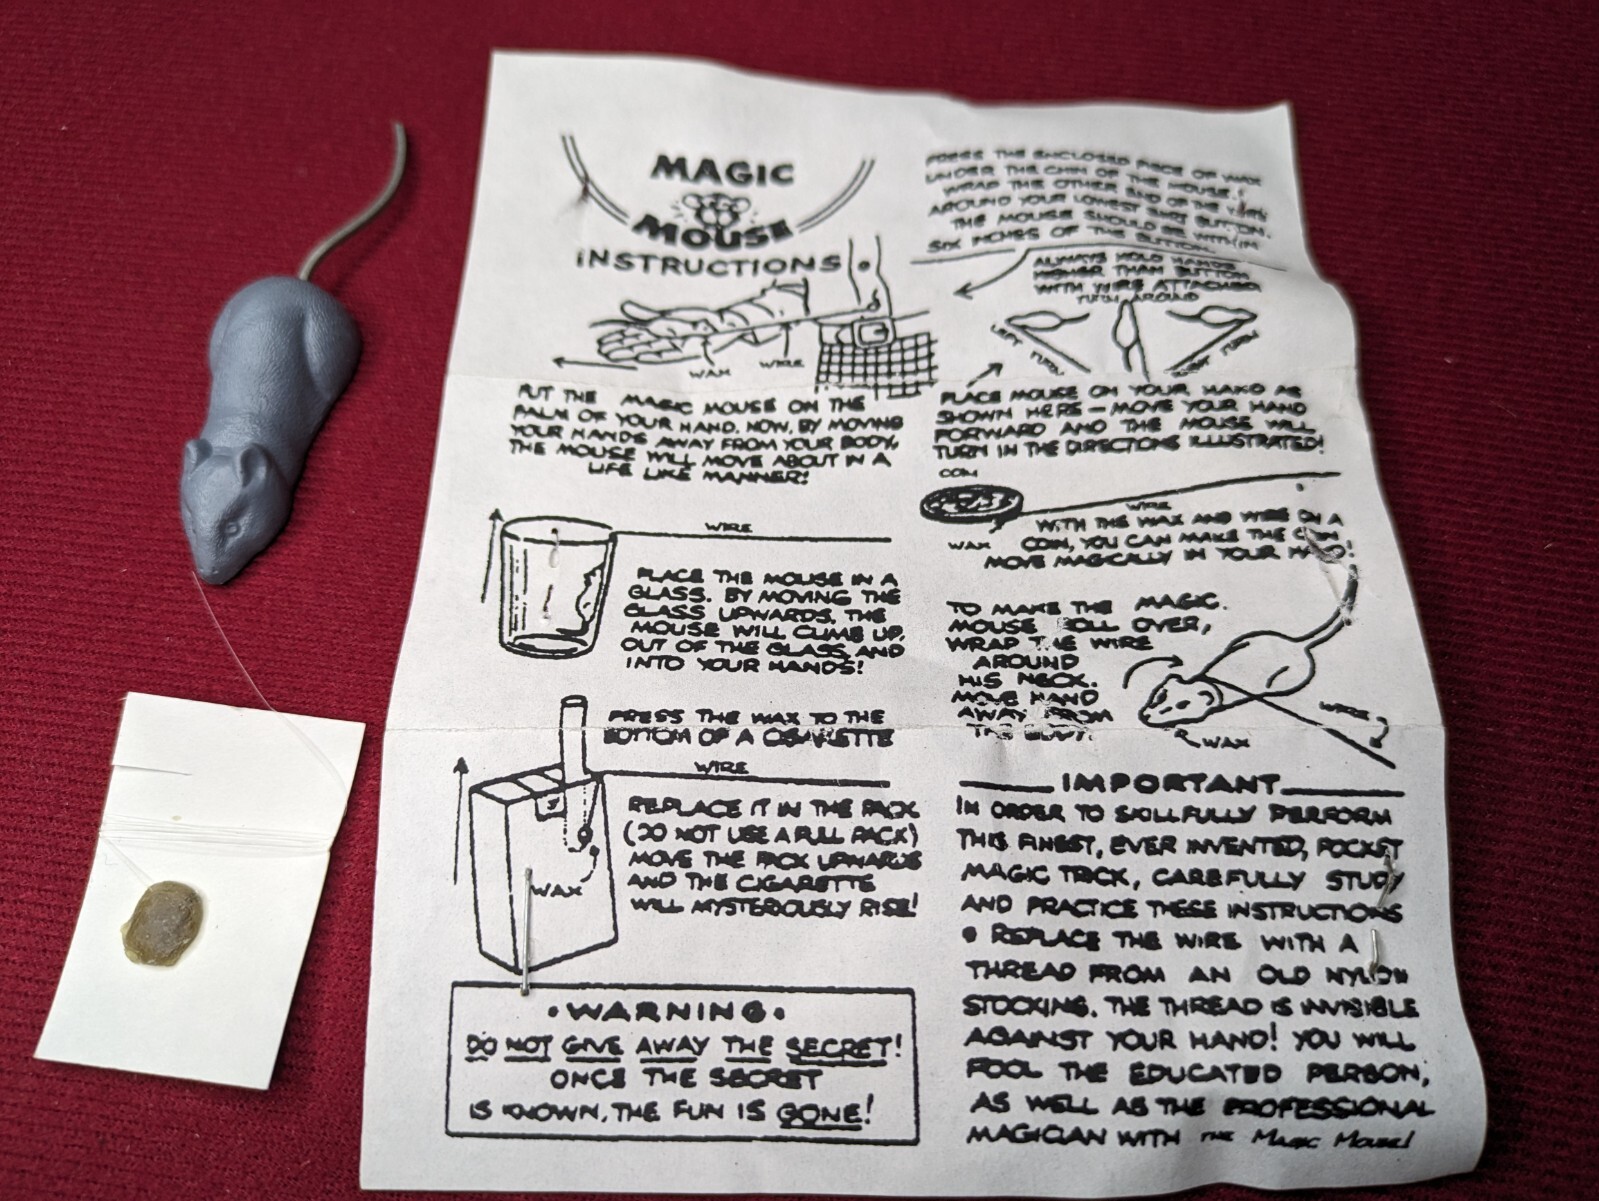 MAGIC
MOUSE
INSTRUCTIONS
WAX
WIRE
PUT THE MAGIC MOUSE ON THE
PALM OF YOUR HAND. NOW, BY MOVING
YOUR HANDS AWAY FROM YOUR BODY,
THE MOUSE WILL MOVE ABOUT IN A
LIFE LIKE MANNER!
WIRE
PLACE THE MOUSE IN A
GLASS. BY MOVING THE
GLASS UPWARDS, THE
MOUSE WILL CLIMB UP,
OUT OF THE GLASS, AND
INTO YOUR HANDS!
PRESS THE WAX TO THE
BOTTOM OF A CIGARETTE
WIRE
REPLACE IT IN THE PACK
(DO NOT USE A FULL PACK)
MOVE THE PACK UPWARDS
AND THE CIGARETTE
WILL MYSTERIOUSLY RISE!
WAX
• WARNING •
DO NOT GIVE AWAY THE SECRET!
ONCE THE SECRET
IS KNOWN, THE FUN IS GONE!
PRESS THE ENCLOSED PIECE OF WAX
UNDER THE CHIN OF THE MOUSE.
WRAP THE OTHER END OF THE WIRE
AROUND YOUR LOWEST SHIRT BUTTON.
THE MOUSE SHOULD BE WITHIN
SIX INCHES OF THE BUTTON.
ALWAYS HOLD HANDS
HIGHER THAN BUTTON
WITH WIRE ATTACHED
TURN AROUND
LEFT TURN
RIGHT TURN
PLACE MOUSE ON YOUR HAND AS
SHOWN HERE — MOVE YOUR HAND
FORWARD AND THE MOUSE WILL
TURN IN THE DIRECTIONS ILLUSTRATED!
COIN
WIRE
WAX
WITH THE WAX AND WIRE ON A
COIN, YOU CAN MAKE THE COIN
MOVE MAGICALLY IN YOUR HAND!
TO MAKE THE MAGIC
MOUSE ROLL OVER,
WRAP THE WIRE
AROUND
HIS NECK.
MOVE HAND
AWAY FROM
THE BODY.
WIRE
WAX
IMPORTANT
IN ORDER TO SKILLFULLY PERFORM
THIS FINEST, EVER INVENTED, POCKET
MAGIC TRICK, CAREFULLY STUDY
AND PRACTICE THESE INSTRUCTIONS
• REPLACE THE WIRE WITH A
THREAD FROM AN OLD NYLON
STOCKING. THE THREAD IS INVISIBLE
AGAINST YOUR HAND! YOU WILL
FOOL THE EDUCATED PERSON,
AS WELL AS THE PROFESSIONAL
MAGICIAN WITH THE Magic Mouse!